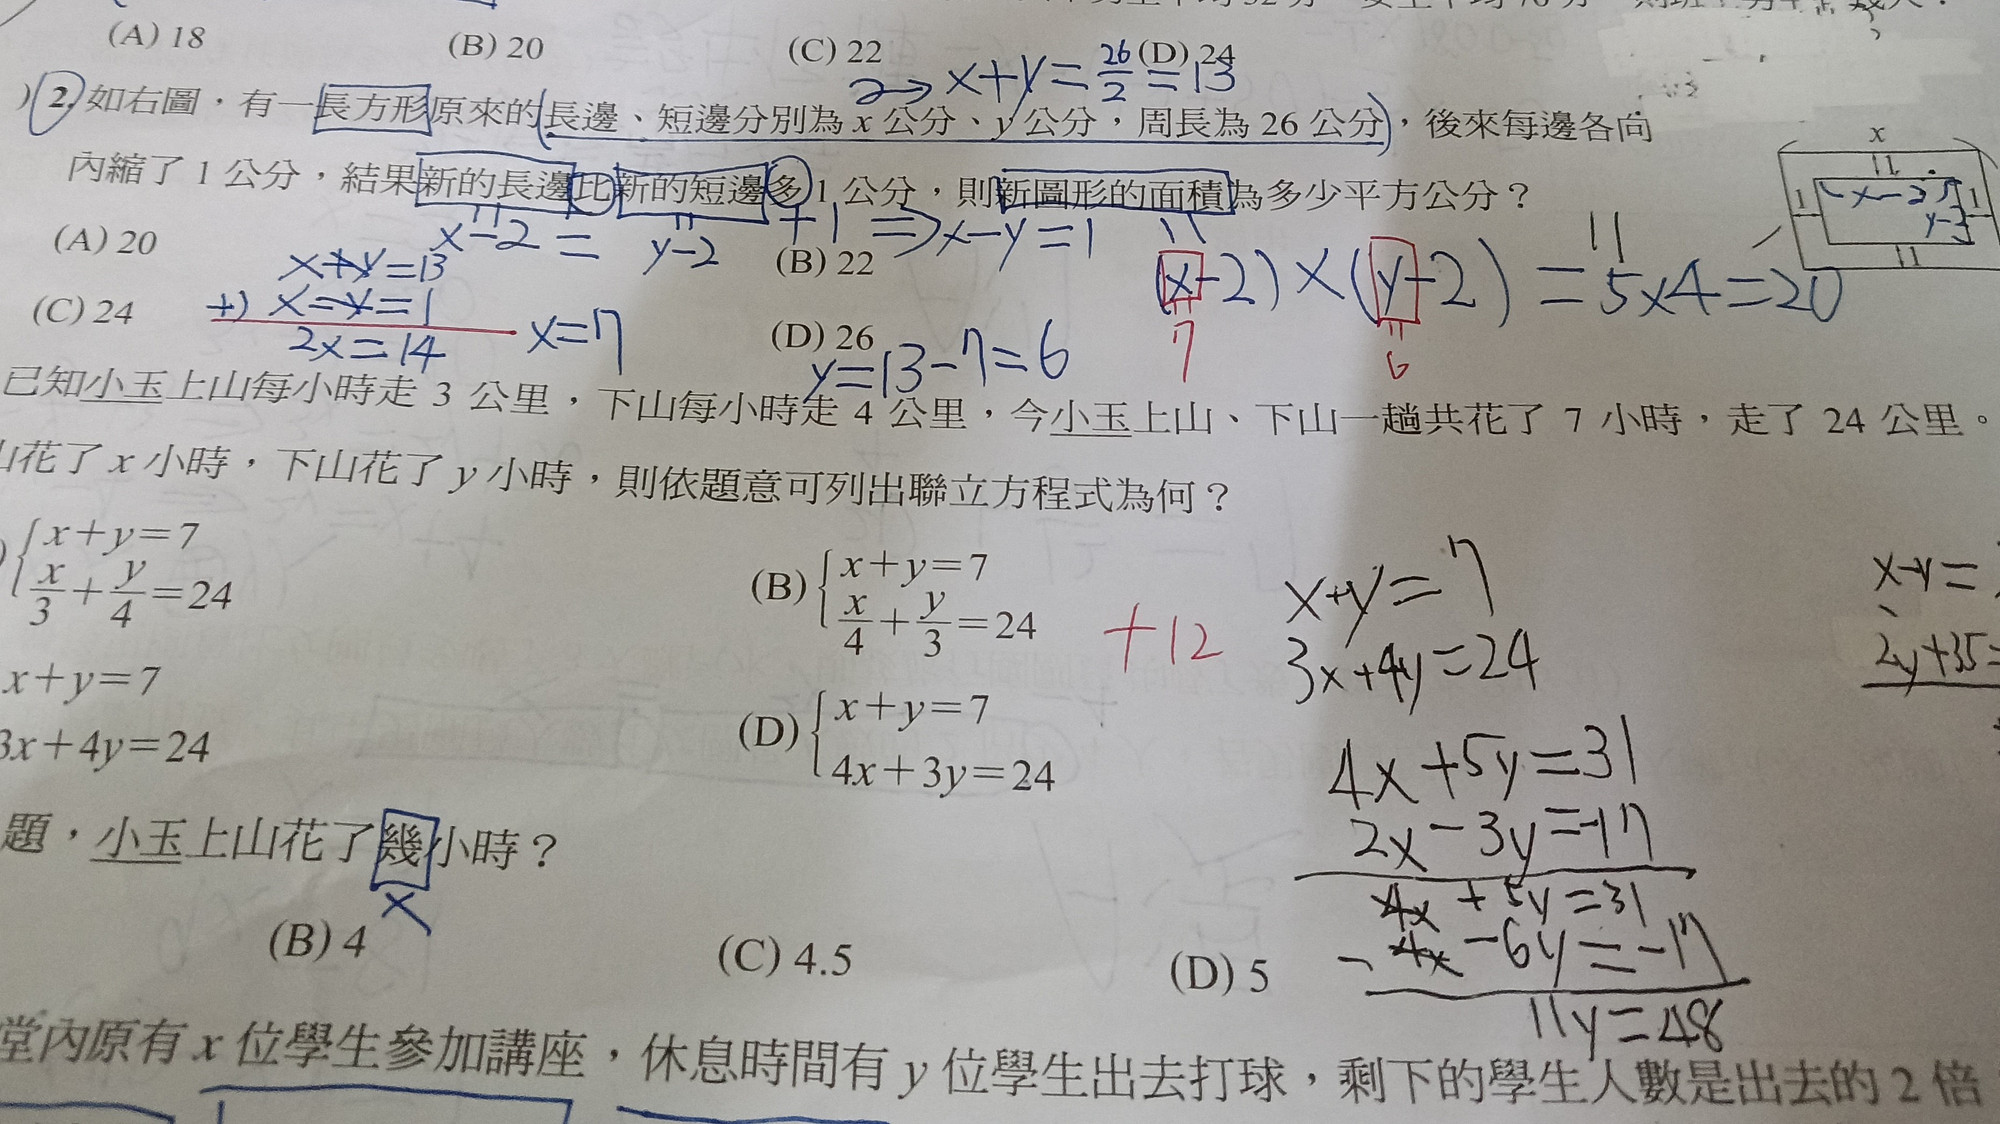 (A) 18 (B) 20 (C) 22 (D) 24
2→x+y=26/2=13
2. 如右圖,有一長方形原來的長邊、短邊分別為 x 公分、y 公分,周長為 26 公分,後來每邊各向
內縮了 1 公分,結果新的長邊比新的短邊多 1 公分,則新圖形的面積為多少平方公分?
x
1 x-2 1
y-2
x-2 = y-2 +1 ⇒ x-y=1
(A) 20 (B) 22
(x-2)×(y-2)=5×4=20
7 6
x+y=13
+) x-y=1
2x=14 x=7
(C) 24 (D) 26
y=13-7=6
已知小玉上山每小時走 3 公里,下山每小時走 4 公里,今小玉上山、下山一趟共花了 7 小時,走了 24 公里。
山花了 x 小時,下山花了 y 小時,則依題意可列出聯立方程式為何?
x+y=7
x/3+y/4=24
(B) x+y=7
x/4+y/3=24
+12
x+y=7
3x+4y=24
x-y=
2y+35=
x+y=7
3x+4y=24
(D) x+y=7
4x+3y=24
4x+5y=31
2x-3y=-17
4x+5y=31
- 4x-6y=-17
11y=48
題,小玉上山花了幾小時?
x
(B) 4 (C) 4.5 (D) 5
堂內原有 x 位學生參加講座,休息時間有 y 位學生出去打球,剩下的學生人數是出去的 2 倍